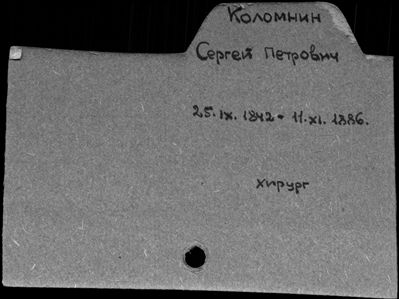 Коломнин
Сергей Петрович
25.IX.1842 - 11.XI.1886.
хирург